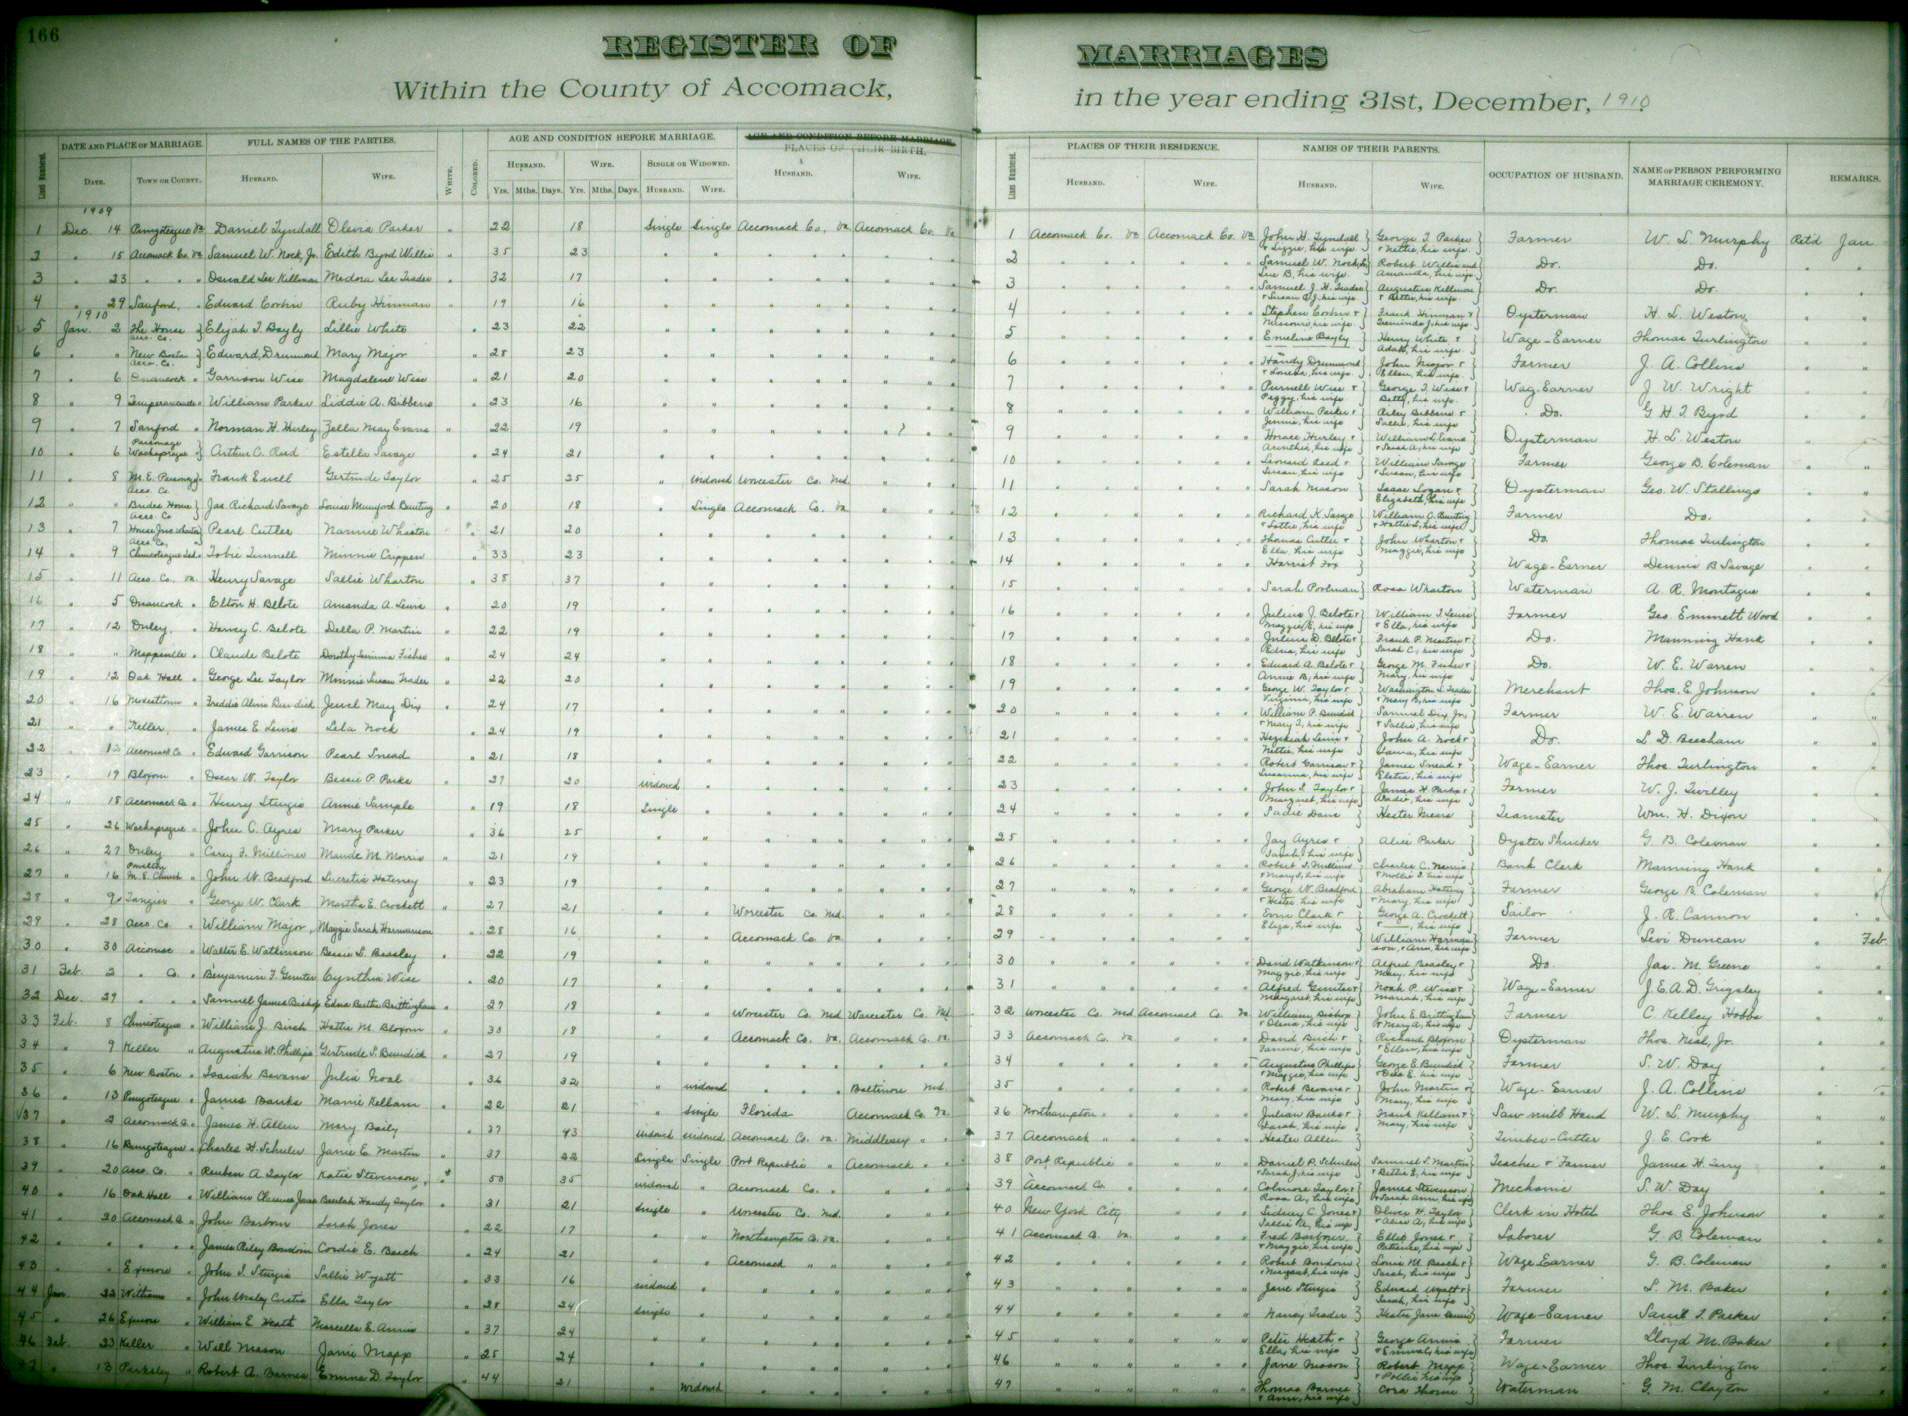 166
REGISTER OF MARRIAGES
Within the County of Accomack, in the year ending 31st, December, 1910
DATE AND PLACE OF MARRIAGE. FULL NAMES OF THE PARTIES. AGE AND CONDITION BEFORE MARRIAGE. AGE AND CONDITION BEFORE MARRIAGE. PLACES OF THEIR BIRTH. PLACES OF THEIR RESIDENCE. NAMES OF THEIR PARENTS. OCCUPATION OF HUSBAND. NAME OF PERSON PERFORMING MARRIAGE CEREMONY. REMARKS.
Line Number. DATE. TOWN OR COUNTY. HUSBAND. WIFE. WHITE. COLORED. HUSBAND. WIFE. SINGLE OR WIDOWED. HUSBAND. WIFE. Line Number. HUSBAND. WIFE. HUSBAND. WIFE.
Yrs. Mths. Days. Yrs. Mths. Days. HUSBAND. WIFE.
1909
1 Dec. 14 Pungoteague Va Daniel Tyndall Olevia Parker " 22 18 Single Single Accomack Co., Va. Accomack Co. Va 1 Accomack Co. Va Accomack Co. Va John H. Tyndall & Lizzie, his wife George T. Parker & Nettie, his wife Farmer W. L. Murphy Ret'd Jan
2 " 15 Accomack Co. Va Samuel W. Nock, Jr. Edith Byrd Willis " 35 23 2 Samuel W. Nock & Sue B., his wife Robert Willis and Amanda, his wife Do. Do.
3 " 23 " " Oswald Lee Killman Medora Lee Trader " 32 17 3 Samuel J. H. Trader Augustus Killmon & Bettie, his wife Do. Do.
4 " 29 Sanford, " Edward Corbin Ruby Hinman " 19 16 4 Stephen Corbin & Missouri, his wife Frank Hinman & Oysterman H. L. Weston
1910
5 Jan. 2 The House Acco. Co. Elijah T. Bayly Lillie White " 23 22 5 Emeline Bayly Henry White & his wife Wage-Earner Thomas Turlington
6 " " New Boston Acco. Co. Edward Drummond Mary Major " 28 23 6 Handy Drummond & Louisa, his wife John Major & Ellen, his wife Farmer J. A. Collins
7 " 6 Onancock " Garrison Wise Magdalene Wise " 21 20 7 Purnell Wise & Peggy, his wife George T. Wise & Betty, his wife Wag. Earner J. W. Wright
8 " 9 Temperanceville " William Parker Liddie A. Bibbens " 23 16 8 William Parker & Jennie, his wife Riley Bibbens & Sallie, his wife Do. G H T Byrd
9 " 7 Sanford " Norman H. Hurley Zella May Evans " 22 19 ? 9 Horace Hurley & his wife William L. Evans & Sarah A., his wife Oysterman H. L. Weston
10 " 6 Parsonage Wachapreague Arthur C. Reed Estella Savage " 24 21 10 Leonard Reed & Susan, his wife William Savage & Susan, his wife Farmer George B. Coleman
11 " 8 M. E. Parsonage Acco. Co. Frank Ewell Gertrude Taylor " 25 25 " widowed Worcester Co. Md. 11 Sarah Mason Isaac Logan & Elizabeth, his wife Oysterman Geo. W. Stallings
12 " " Brides Home Acco. Co. Jas Richard Savage Louise Mumford Bunting " 20 18 " Single Accomack Co. Va. 12 Richard K. Savage & Lottie, his wife William C. Bunting & Hattie S., his wife Farmer Do.
13 " 7 House Jno Wharton Acco. Co. Pearl Cutler Nannie Wharton " 21 20 13 Thomas Cutler & Ella, his wife John Wharton & Maggie, his wife Do Thomas Turlington
14 " 9 Chincoteague Isd. " Tobie Tunnell Minnie Crippen " 33 23 14 Harriet Fox Wage-Earner Dennis B Savage
15 " 11 Acco. Co. Va. Henry Savage Sallie Wharton " 38 37 15 Sarah Poolman Rosa Wharton Waterman A. R. Montague
16 " 5 Onancock " Elton H. Belote Amanda A. Lewis " 20 19 16 Julius J. Belote & Maggie E., his wife William T. Lewis & Ella, his wife Farmer Geo. Emmett Wood
17 " 12 Onley, " Harvey C. Belote Della P. Martin " 22 19 17 Julius D. Belote & Edna, his wife Frank P. Martin & Sarah C., his wife Do. Manning Hank
18 " " Mappsville " Claude Belote Dorothy Fisher " 24 24 18 Edward A. Belote & Annie B., his wife George M. Fisher & Mary, his wife Do. W. E. Warren
19 " 12 Oak Hall " George Lee Taylor Minnie Susan Trader " 22 20 19 George W. Taylor & Virginia, his wife Washington L. Trader & Mary B., his wife Merchant Thos. E. Johnson
20 " 16 Modesttown " Freddie Alvin Bundick Jewel May Dix " 24 17 20 William P. Bundick & Mary T., his wife Samuel Dix Jr., & Sallie, his wife Farmer W. E. Warren
21 " " Keller, " James E. Lewis Lela Nock " 24 19 21 Hezekiah Lewis & Nettie, his wife John A. Nock & his wife Do. L. D. Beecham
22 " 12 Accomack Co " Edward Garrison Pearl Snead " 21 18 22 Robert Garrison & Susanna, his wife James Snead & his wife Wage-Earner Thos. Turlington
23 " 19 Bloxom " Oscar W. Taylor Bessie P. Parks " 27 20 widowed " 23 John T. Taylor & Margaret, his wife James H. Parks & his wife Farmer W. J. Twilley
24 " 18 Accomack Co " Henry Sturgis Annie Sample " 19 18 Single " 24 Sadie Davis Hester Mears Teamster Wm. H. Dixon
25 " 26 Wachapreague " John C. Ayres Mary Parker " 36 25 25 Jay Ayres & Sarah, his wife Alice Parker Oyster Shucker G. B. Coleman
26 " 27 Onley " Carey F. Milliner Maude M. Morris " 21 19 26 Robert T. Milliner & Mary S., his wife Charles C. Morris & Mollie T., his wife Bank Clerk Manning Hank
27 " 16 M. E. Church " John W. Bradford Lucretia Hateney " 23 19 27 George W. Bradford & Hester, his wife Abraham Hateny & Mary, his wife Farmer George B. Coleman
28 " 9 Tangier " George W. Clark Martha E. Crockett " 27 21 " " Worcester Co. Md. 28 Clark & Eliza, his wife George A. Crockett & ——, his wife Sailor J. R. Cannon
29 " 28 Acco. Co. " William Major Maggie Sarah Harmanson " 28 16 " " Accomack Co. Va. 29 William Harmanson, & Ann, his wife Farmer Levi Duncan " Feb.
30 " 30 Accomac " Walter E. Watkinson Bessie L. Beasley " 22 19 30 David Watkinson & Maggie, his wife Alfred Beasley & Mary, his wife Do. Jas. M. Greene
31 Feb. 2 " Co. " Benjamin F. Gunter Cynthia Wise " 20 17 31 Alfred Gunter & Margaret, his wife Noah P. Wise & Mariah, his wife Wage-Earner J. E. A. D. Grigsley
32 Dec. 29 " " Samuel James Bishop Edna Bertie Brittingham " 27 18 " " Worcester Co. Md. Worcester Co. Md. 32 Worcester Co. Md Accomack Co. Va William Bishop & his wife John E. Brittingham & Mary A., his wife Farmer C. Kelley Hobbs
33 Feb. 8 Chincoteague " William J. Birch Hattie M. Bloxom " 30 18 " " Accomack Co. Va. Accomack Co. Va. 33 Accomack Co. Va David Birch & Fannie, his wife Richard Bloxom & Ellen, his wife Oysterman Thos. Neal, Jr.
34 " 9 Keller " Augustus W. Phillips Gertrude S. Bundick " 27 19 34 Augustus Phillips & Maggie, his wife George E. Bundick & his wife Farmer S. W. Day
35 " 6 New Boston " Isaiah Bevans Julia Noal " 36 32 " widowed " " Baltimore Md. 35 Robert Bevans & Mary, his wife John Martin & Mary, his wife Wage-Earner J. A. Collins
36 " 13 Pungoteague " James Banks Mamie Kellam " 22 21 " Single Florida Accomack Co. Va. 36 Northampton " Julian Banks & Sarah, his wife Frank Kellam & Mary, his wife Saw mill Hand W. L. Murphy
37 " 2 Accomack Co. " James H. Allen Mary Baily " 37 43 widowed widowed Accomack Co. Va. Middlesex " " 37 Accomack " " Hester Allen Timber-Cutter J. E. Cook
38 " 16 Pungoteague " Charles H. Schuler Janie E. Martin " 37 22 Single Single Port Republic " Accomack " " 38 Port Republic " Daniel P. Schuler & Sarah J., his wife Samuel S. Martin & Bettie E., his wife Teacher & Farmer James H. Terry
39 " 20 Acco. Co. " Reuben A. Taylor Katie Stevenson " 50 35 widowed " Accomack Co. " 39 Accomack Co. Colmore Taylor & Rosa A., his wife James Stevenson & Sarah Ann, his wife Mechanic S. W. Day
40 " 16 Oak Hall " William Clarence Jones Beulah Handy Taylor " 31 21 Single " Worcester Co. Md. 40 New York City Sidney C. Jones & his wife Oliver H. Taylor & Alice A., his wife Clerk in Hotel Thos. E. Johnson
41 " 20 Accomack Co. " John Barbour Sarah Jones " 22 17 " " Northampton Co. Va. 41 Accomack Co. Va. Fred Barbour & Maggie, his wife Jones & Patience, his wife Laborer G. B. Coleman
42 " " " " James Riley Boudoin Cordie E. Beach " 24 21 " " Accomack " " 42 Robert Boudoin & Margaret, his wife Louis M. Beach & Sarah, his wife Wage Earner G. B. Coleman
43 " " Exmore " John T. Sturgis Sallie Wyatt " 33 16 widowed " 43 Jane Sturgis Edward Wyatt & Sarah, his wife Farmer L. M. Baker
44 Jan. 22 Withams " John Wesley Curtis Ella Taylor " 28 24 Single " 44 Nancy Trader Hester Jane Wage-Earner Sam'l T. Parker
45 " 26 Exmore " William E. Heath Marcella E. Annis " 37 24 45 Peter Heath & Ella, his wife George Annis & his wife Farmer Lloyd M. Baker
46 Feb. 23 Keller " Will Mason Janie Mapp " 25 24 46 Jane Mason Robert Mapp & Pollie his wife Wage-Earner Thos Turlington
47 " 13 Parksley " Robert A. Barnes Emma D. Taylor " 44 21 " widowed 47 Thomas Barnes & Ann, his wife Cora Thorns Waterman G. M. Clayton